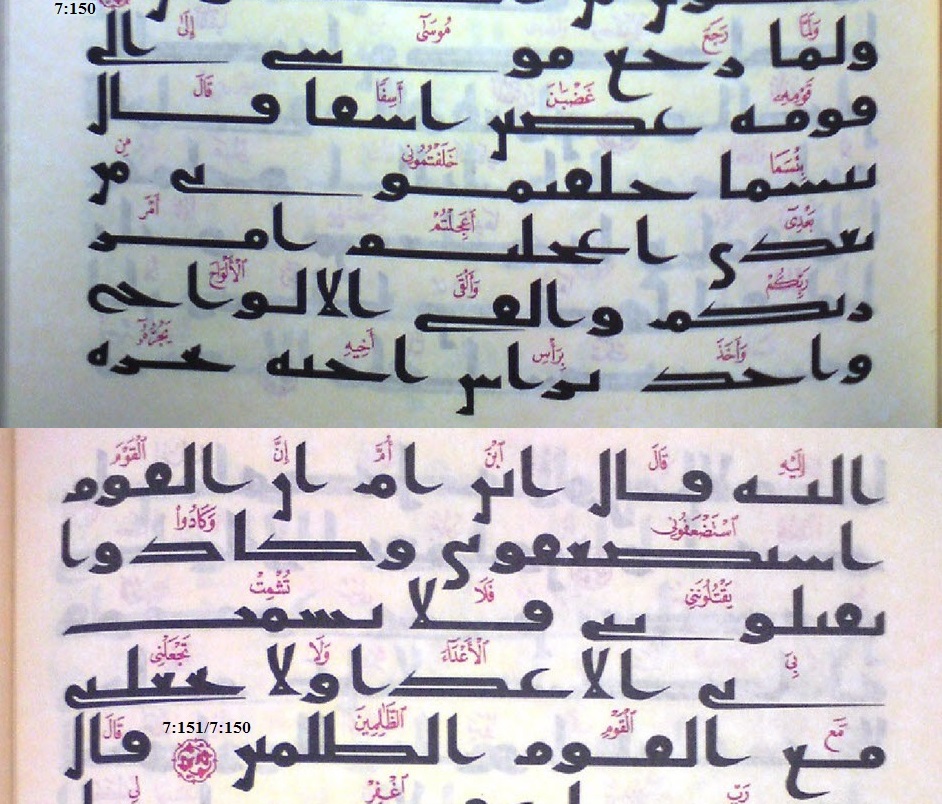 7:150
وَلَمَّا رَجَعَ مُوسَىٰ إِلَىٰ
ولما رجع موسى الى
قَوْمِهِۦ غَضْبَٰنَ أَسِفًا قَالَ
قومه غضبن اسفا قال
بِئْسَمَا خَلَفْتُمُونِى مِنۢ
بئسما خلفتمونى من
بَعْدِىٓ أَعَجِلْتُمْ أَمْرَ
بعدى اعجلتم امر
رَبِّكُمْ وَأَلْقَى ٱلْأَلْوَاحَ
ربكم والقى الالواح
وَأَخَذَ بِرَأْسِ أَخِيهِ يَجُرُّهُۥٓ
واخذ براس اخيه يجره
إِلَيْهِ قَالَ ٱبْنَ أُمَّ إِنَّ ٱلْقَوْمَ
اليه قال ابن ام ان القوم
ٱسْتَضْعَفُونِى وَكَادُوا۟
استضعفونى وكادوا
يَقْتُلُونَنِى فَلَا تُشْمِتْ
يقتلوننى فلا تشمت
بِىَ ٱلْأَعْدَآءَ وَلَا تَجْعَلْنِى
بى الاعدا ولا تجعلنى
مَعَ ٱلْقَوْمِ ٱلظَّٰلِمِينَ 7:151/7:150 قَالَ
مع القوم الظلمين قال
رَبِّ ٱغْفِرْ لِى